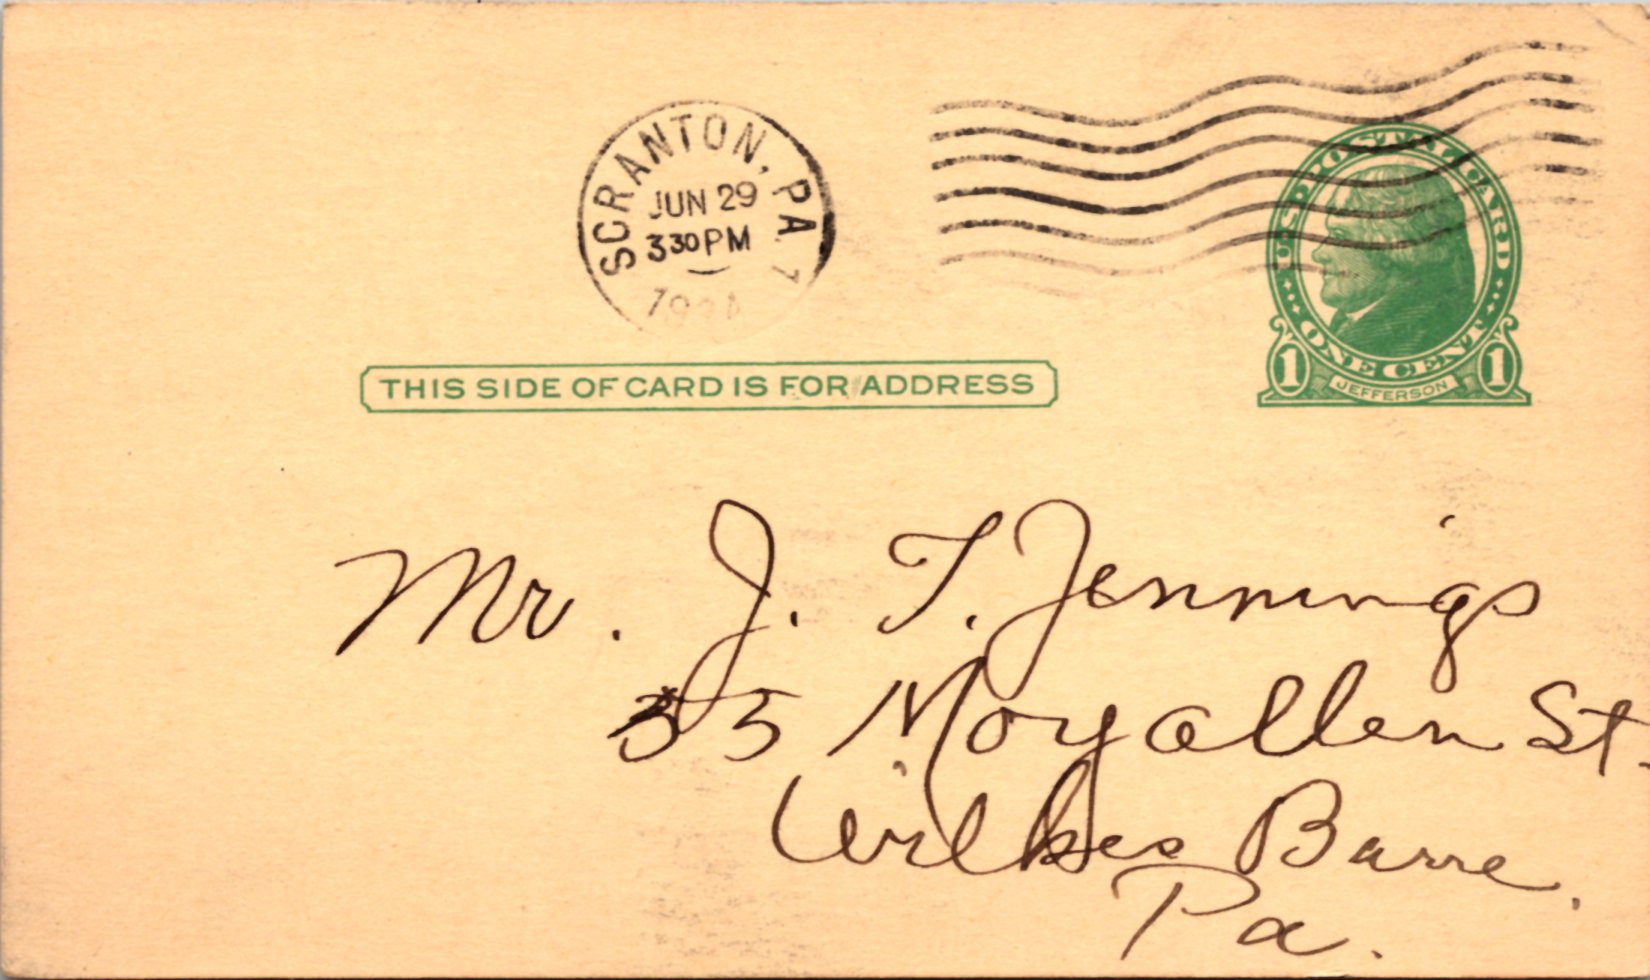 SCRANTON, PA
JUN 29
3 30 PM
U.S. POSTAL CARD
ONE CENT
1 JEFFERSON 1
THIS SIDE OF CARD IS FOR ADDRESS
Mr. J. T. Jennings
35 Moyallen St.
Wilkes Barre,
Pa.